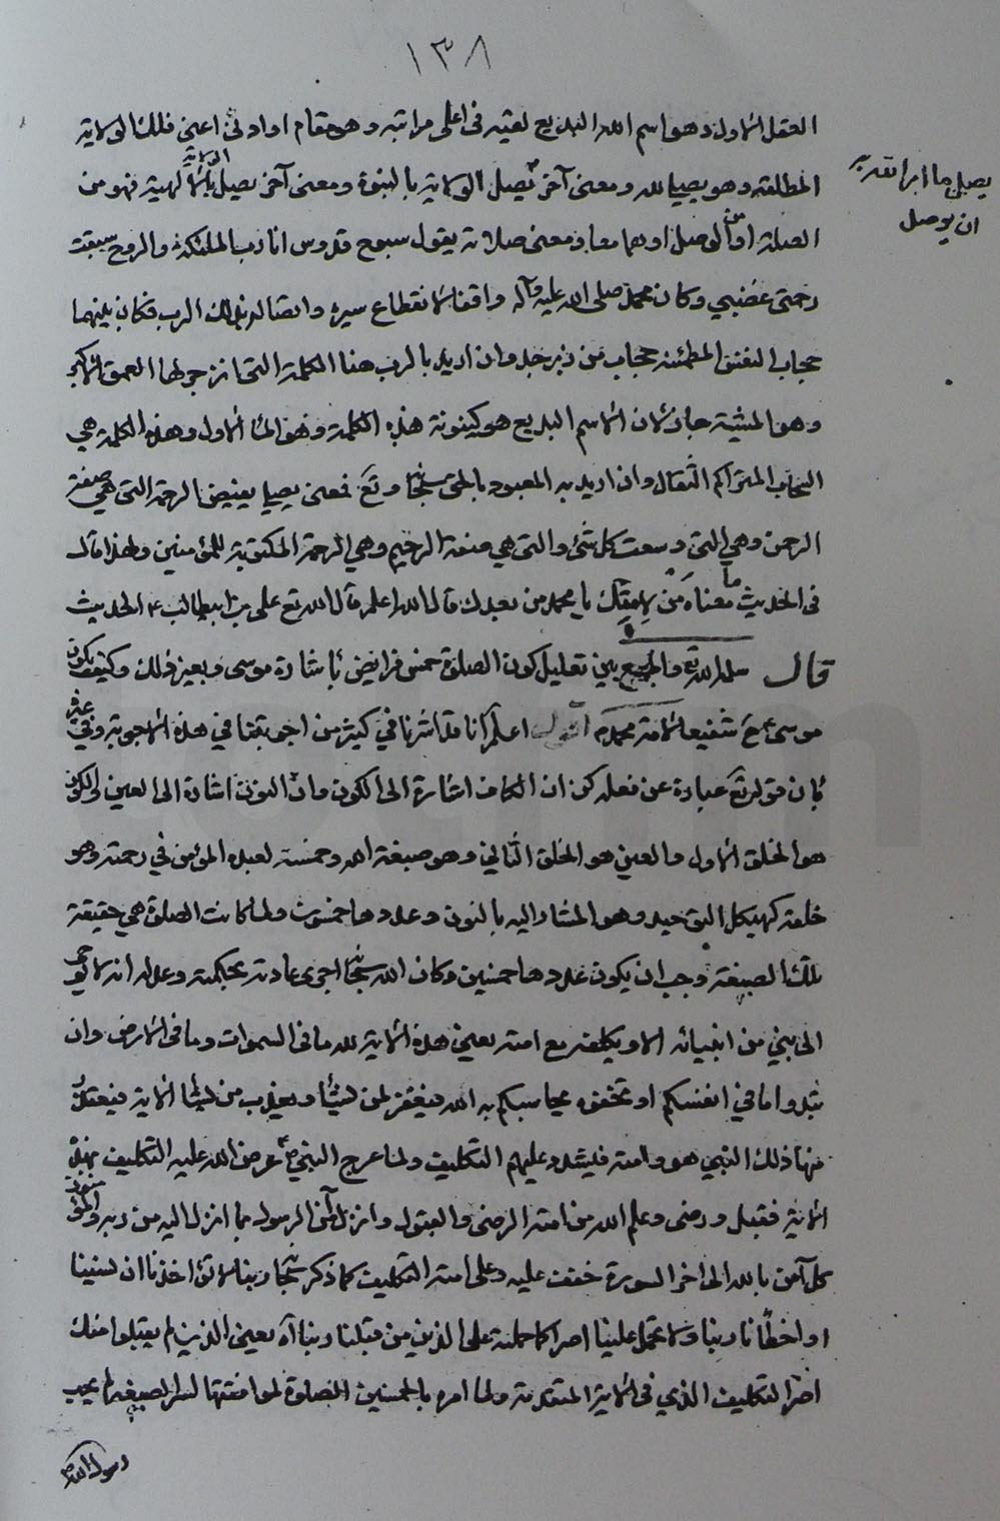 ١٣٨
العقل الاول وهو اسم الله البديع لعينه في اعلى مراتبه وهو مقام او ادنى اعني فلك الولاية
المطلقة وهو يصلي لله ومعنى آخر يصل الولاية بالنبوة ومعنى آخر يصل الولاية بالالهية فهو من
يصلي ما امر الله به
ان يوصل
الصلة او من الوصل او هما معا ومعنى صلاته يقول سبوح قدوس انا رب الملئكة والروح سبقت
رحمتي غضبي وكان محمد صلى الله عليه وآله واقفا لانقطاع سيره واتصاله بذلك الرب فكان بينهما
حجاب النفس المطمئنة حجاب من زبرجد وان اريد بالرب هنا الكلمة التي انزجر لها العمق الاكبر
وهو المشية جاز لان الاسم البديع هو كينونة هذه الكلمة وهو الماء الاول وهذه الكلمة هي
السحاب المتراكم الثقال وان اريد به المعبود بالحق سبحانه وتع فمعنى يصلي يفيض الرحمة التي هي صفة
الرحمن وهي التي وسعت كل شئ والتي هي صفة الرحيم وهي الرحمة المكتوبة للمؤمنين ولهذا قال
في الحديث ما معناه من لامتك يا محمد من بعدك قال الله اعلم قال الله تع علي بن ابيطالب ع الحديث
قال سلمه الله تع والجمع بين تعليل كون الصلوة خمس فرايض باشارة موسى وبغير ذلك وكيف يكون
موسى ع شفيعا لامة محمد ص اقول اعلم انا قد اشرنا في كثير من اجوبتنا في هذه الاجوبة وفي غيرها
بان قوله تع عبارة عن فعله كن ان الكاف اشارة الى الكون وان النون اشارة الى العين والكون
هو الخلق الاول والعين هو الخلق الثاني وهو صبغة الله وخمسة لعبده المؤمن في رحمته وهو
خلقه كهيكل التوحيد وهو المشار اليه بالنون وعددها خمسون ولما كانت الصلوة هي حقيقة
تلك الصبغة وجب ان يكون عددها خمسين وكان الله سبحانه اجرى عادته بحكمته وعدله انه لا يوحي
الى نبي من انبيائه الا ويكلفه مع امته بمعنى هذه الاية لله ما في السموات وما في الارض وان
تبدوا ما في انفسكم او تخفوه يحاسبكم به الله فيغفر لمن يشاء ويعذب من يشاء الاية فيعقل
منها ذلك النبي هو وامته فيشدد عليهم التكليف ولما عرج النبي ص عرض الله عليه التكليف بهذه
الاية فقبل ورضى وعلم الله من امته الرضى والقبول وانزل آمن الرسول بما انزل اليه من ربه والمؤمنون
كل آمن بالله الى اخر السورة خففت عليه وعلى امته التكليف كما ذكر سبحانه ربنا لا تؤاخذنا ان نسينا
او اخطأنا ربنا ولا تحمل علينا اصرا كما حملته على الذين من قبلنا ربنا آه يعني الذين لم يقبلوا منك
اصر التكليف الذي في الاية المتقدمة ولما امره بالخمسين الصلوة لموافقتها لسر الصبغة لم يجب
رسول الله ص